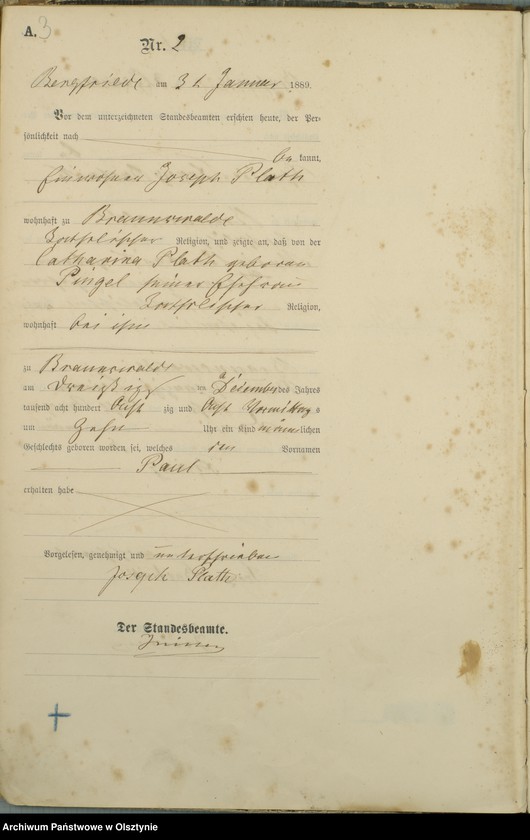 A. 3
Nr. 2
Bergfriede am 31. Januar 1889.
Vor dem unterzeichneten Standesbeamten erschien heute, der Per-
sönlichkeit nach
be kannt,
Einwohner Joseph Plath
wohnhaft zu Braunswalde
katholischer Religion, und zeigte an, daß von der
Catharina Plath geboren
Pingel seiner Ehefrau
katholischer Religion,
wohnhaft bei ihm
zu Braunswalde
am dreißig ten Dezember des Jahres
tausend acht hundert acht zig und acht Vormittags
um zehn Uhr ein Kind männlichen
Geschlechts geboren worden sei, welches den Vornamen
Paul
erhalten habe
Vorgelesen, genehmigt und unterschrieben
Joseph Plath
Der Standesbeamte.
Archiwum Państwowe w Olsztynie